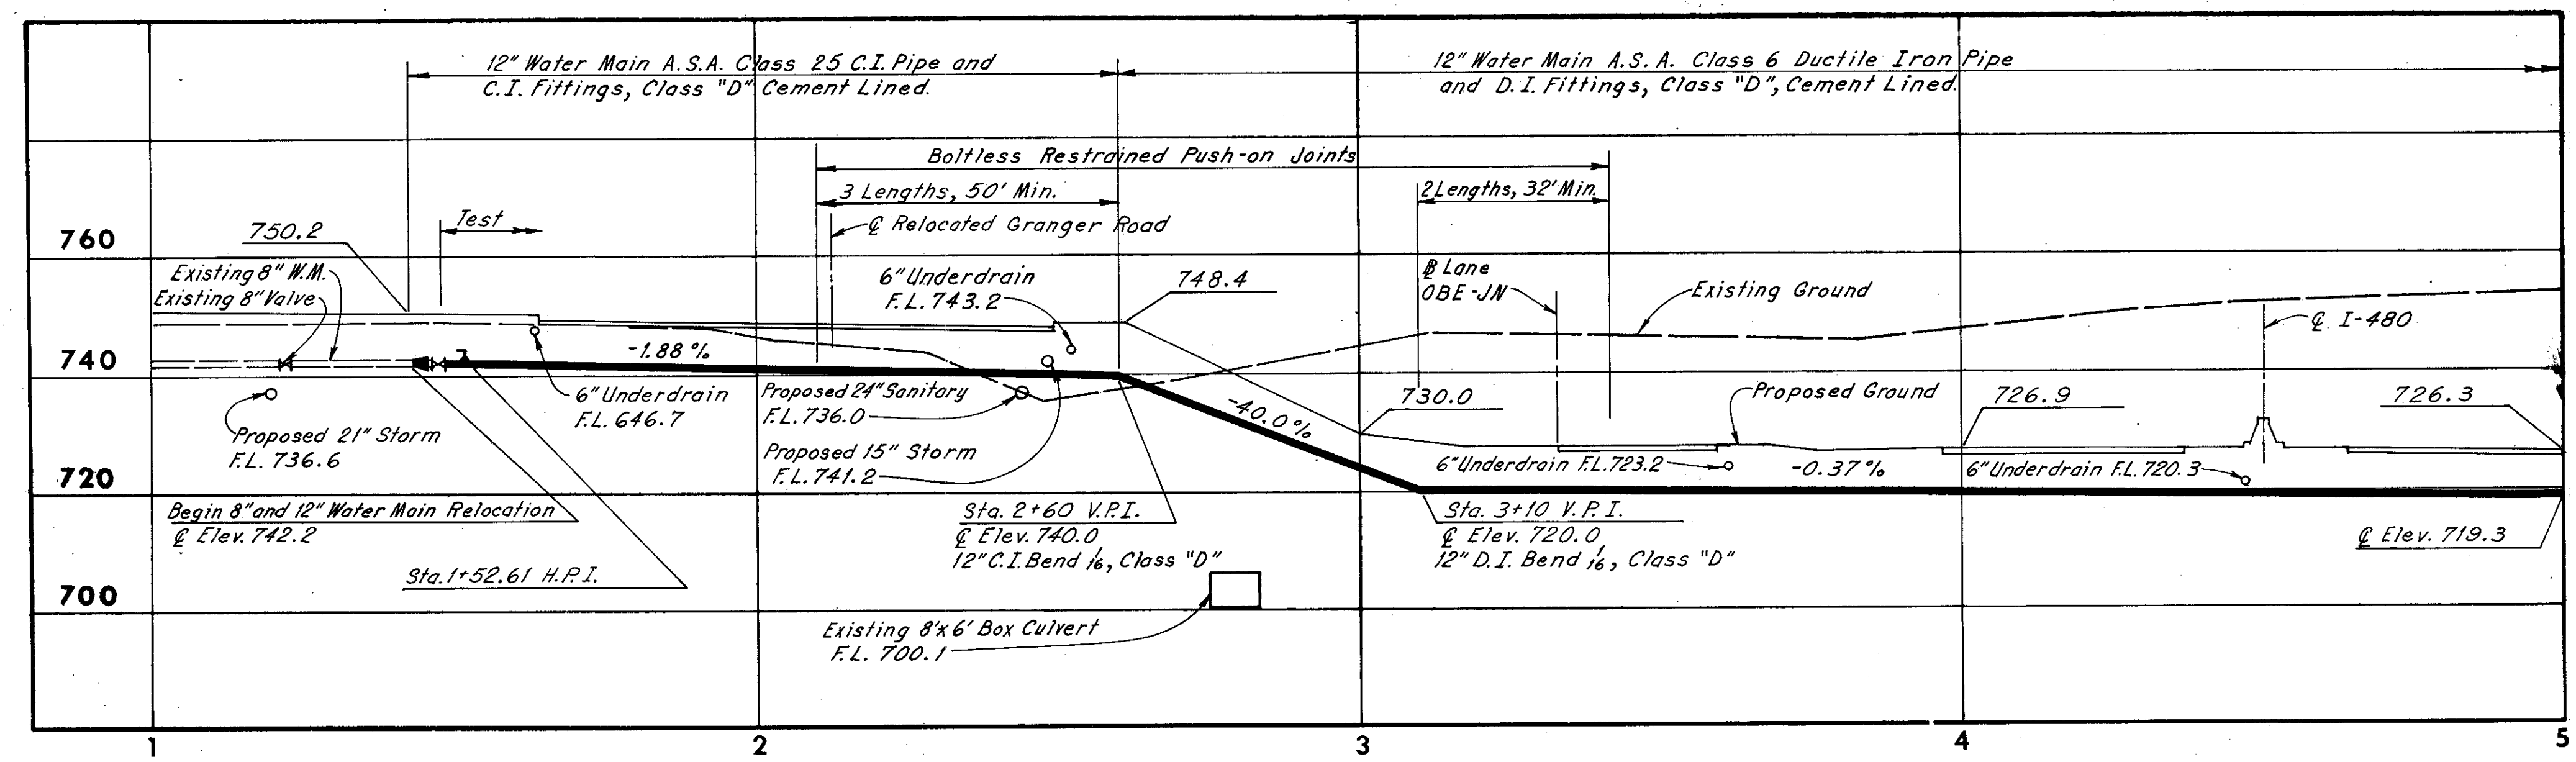 12" Water Main A.S.A. Class 25 C.I. Pipe and
C.I. Fittings, Class "D" Cement Lined.
12" Water Main A.S.A. Class 6 Ductile Iron Pipe
and D.I. Fittings, Class "D", Cement Lined.
Boltless Restrained Push-on Joints
3 Lengths, 50' Min.
2 Lengths, 32' Min.
Test
℄ Relocated Granger Road
760
750.2
Existing 8" W.M.
Existing 8" Valve
6" Underdrain
F.L. 743.2
748.4
Lane
OBE-JN
Existing Ground
℄ I-480
740
-1.88 %
6" Underdrain
F.L. 646.7
Proposed 24" Sanitary
F.L. 736.0
-40.0 %
730.0
Proposed Ground
726.9
726.3
Proposed 21" Storm
F.L. 736.6
Proposed 15" Storm
F.L. 741.2
6" Underdrain F.L. 723.2
-0.37 %
6" Underdrain F.L. 720.3
720
Begin 8" and 12" Water Main Relocation
℄ Elev. 742.2
Sta. 2+60 V.P.I.
℄ Elev. 740.0
12" C.I. Bend 1/16, Class "D"
Sta. 3+10 V.P.I.
℄ Elev. 720.0
12" D.I. Bend 1/16, Class "D"
℄ Elev. 719.3
Sta. 1+52.61 H.P.I.
700
Existing 8'x6' Box Culvert
F.L. 700.1
1
2
3
4
5